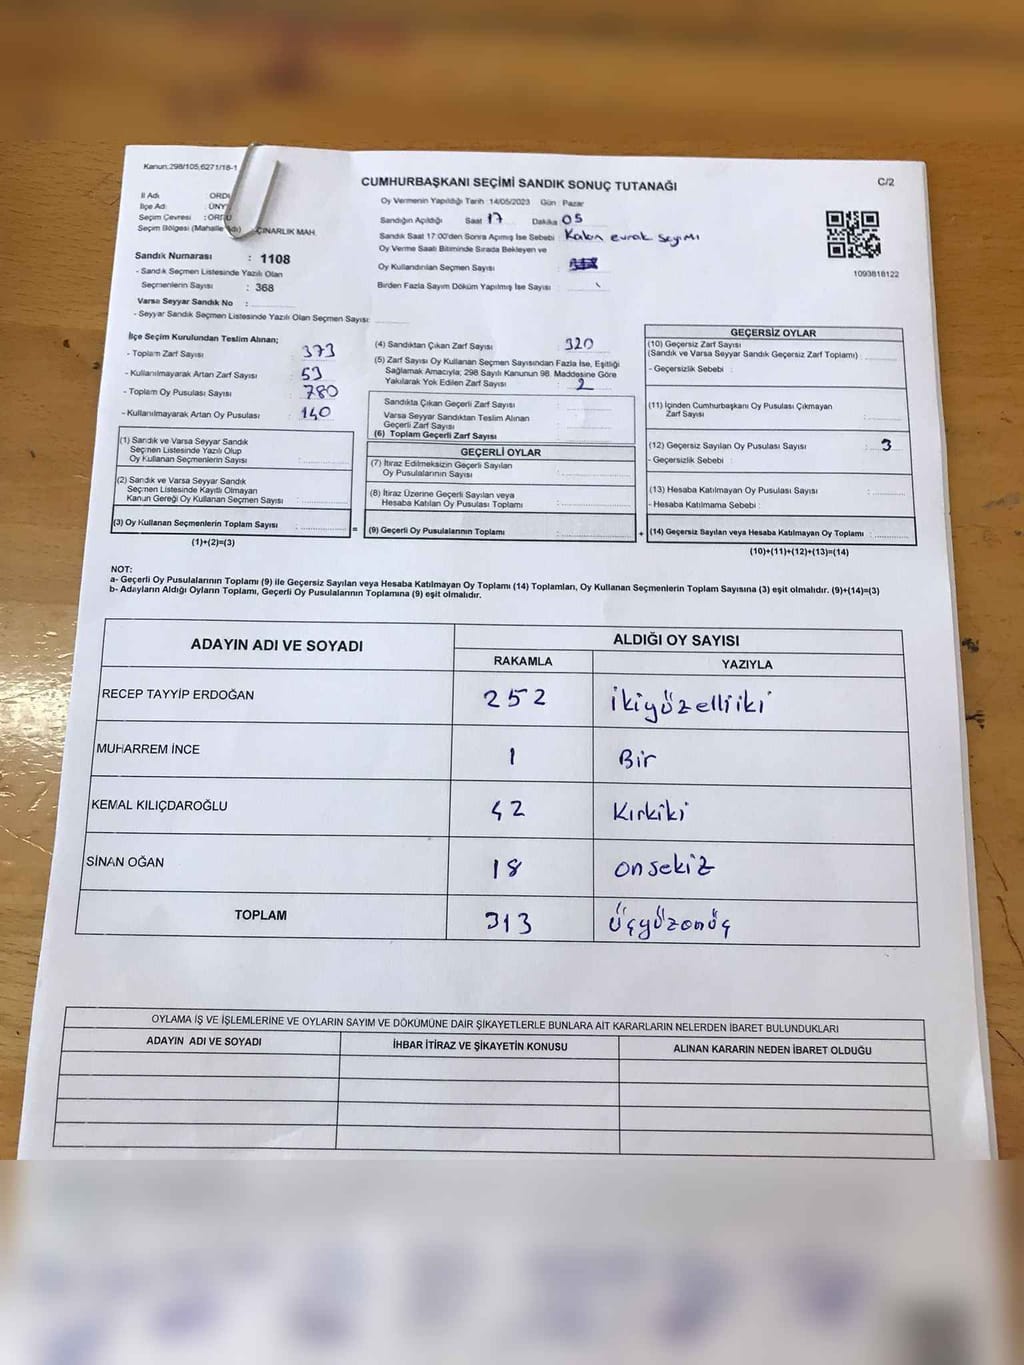 Kanun:298/105,6271/18-1
CUMHURBAŞKANI SEÇİMİ SANDIK SONUÇ TUTANAĞI
C/2
İl Adı ORDU
İlçe Adı: ÜNY
Seçim Çevresi :ORDU
Seçim Bölgesi (Mahalle Adı) ÇINARLIK MAH.
Oy Vermenin Yapıldığı Tarih 14/05/2023 Gün : Pazar
Sandığın Açıldığı Saat 17 Dakika 05
Sandık Saat 17:00'den Sonra Açımış İse Sebebi : Kalan evrak sayımı
Oy Verme Saati Bitiminde Sırada Bekleyen ve
Oy Kullandırılan Seçmen Sayısı :
Birden Fazla Sayım Döküm Yapılmış İse Sayısı :
1093818122
Sandık Numarası : 1108
- Sandık Seçmen Listesinde Yazılı Olan
Seçmenlerin Sayısı : 368
Varsa Seyyar Sandık No :
- Seyyar Sandık Seçmen Listesinde Yazılı Olan Seçmen Sayısı:
İlçe Seçim Kurulundan Teslim Alınan;
- Toplam Zarf Sayısı : 373
- Kullanılmayarak Artan Zarf Sayısı : 53
- Toplam Oy Pusulası Sayısı : 780
- Kullanılmayarak Artan Oy Pusulası : 140
(1) Sandık ve Varsa Seyyar Sandık
Seçmen Listesinde Yazılı Olup
Oy Kullanan Seçmenlerin Sayısı :
(2) Sandık ve Varsa Seyyar Sandık
Seçmen Listesinde Kayıtlı Olmayan
Kanun Gereği Oy Kullanan Seçmen Sayısı :
(3) Oy Kullanan Seçmenlerin Toplam Sayısı :
(1)+(2)=(3)
=
(4) Sandıktan Çıkan Zarf Sayısı : 320
(5) Zarf Sayısı Oy Kullanan Seçmen Sayısından Fazla İse, Eşitliği
Sağlamak Amacıyla; 298 Sayılı Kanunun 98. Maddesine Göre
Yakılarak Yok Edilen Zarf Sayısı : 2
Sandıkta Çıkan Geçerli Zarf Sayısı :
Varsa Seyyar Sandıktan Teslim Alınan
Geçerli Zarf Sayısı :
(6) Toplam Geçerli Zarf Sayısı :
GEÇERLİ OYLAR
(7) İtiraz Edilmeksizin Geçerli Sayılan
Oy Pusulalarının Sayısı :
(8) İtiraz Üzerine Geçerli Sayılan veya
Hesaba Katılan Oy Pusulası Toplamı :
(9) Geçerli Oy Pusulalarının Toplamı :
+
GEÇERSİZ OYLAR
(10) Geçersiz Zarf Sayısı
(Sandık ve Varsa Seyyar Sandık Geçersiz Zarf Toplamı) :
- Geçersizlik Sebebi :
(11) İçinden Cumhurbaşkanı Oy Pusulası Çıkmayan
Zarf Sayısı :
(12) Geçersiz Sayılan Oy Pusulası Sayısı : 3
- Geçersizlik Sebebi :
(13) Hesaba Katılmayan Oy Pusulası Sayısı :
- Hesaba Katılmama Sebebi :
(14) Geçersiz Sayılan veya Hesaba Katılmayan Oy Toplamı :
(10)+(11)+(12)+(13)=(14)
NOT:
a- Geçerli Oy Pusulalarının Toplamı (9) ile Geçersiz Sayılan veya Hesaba Katılmayan Oy Toplamı (14) Toplamları, Oy Kullanan Seçmenlerin Toplam Sayısına (3) eşit olmalıdır. (9)+(14)=(3)
b- Adayların Aldığı Oyların Toplamı, Geçerli Oy Pusulalarının Toplamına (9) eşit olmalıdır.
ADAYIN ADI VE SOYADI
ALDIĞI OY SAYISI
RAKAMLA YAZIYLA
RECEP TAYYİP ERDOĞAN 252 ikiyüzelliiki
MUHARREM İNCE 1 Bir
KEMAL KILIÇDAROĞLU 42 Kırkiki
SİNAN OĞAN 18 onsekiz
TOPLAM 313 üçyüzonüç
OYLAMA İŞ VE İŞLEMLERİNE VE OYLARIN SAYIM VE DÖKÜMÜNE DAİR ŞİKAYETLERLE BUNLARA AİT KARARLARIN NELERDEN İBARET BULUNDUKLARI
ADAYIN ADI VE SOYADI İHBAR İTİRAZ VE ŞİKAYETİN KONUSU ALINAN KARARIN NEDEN İBARET OLDUĞU